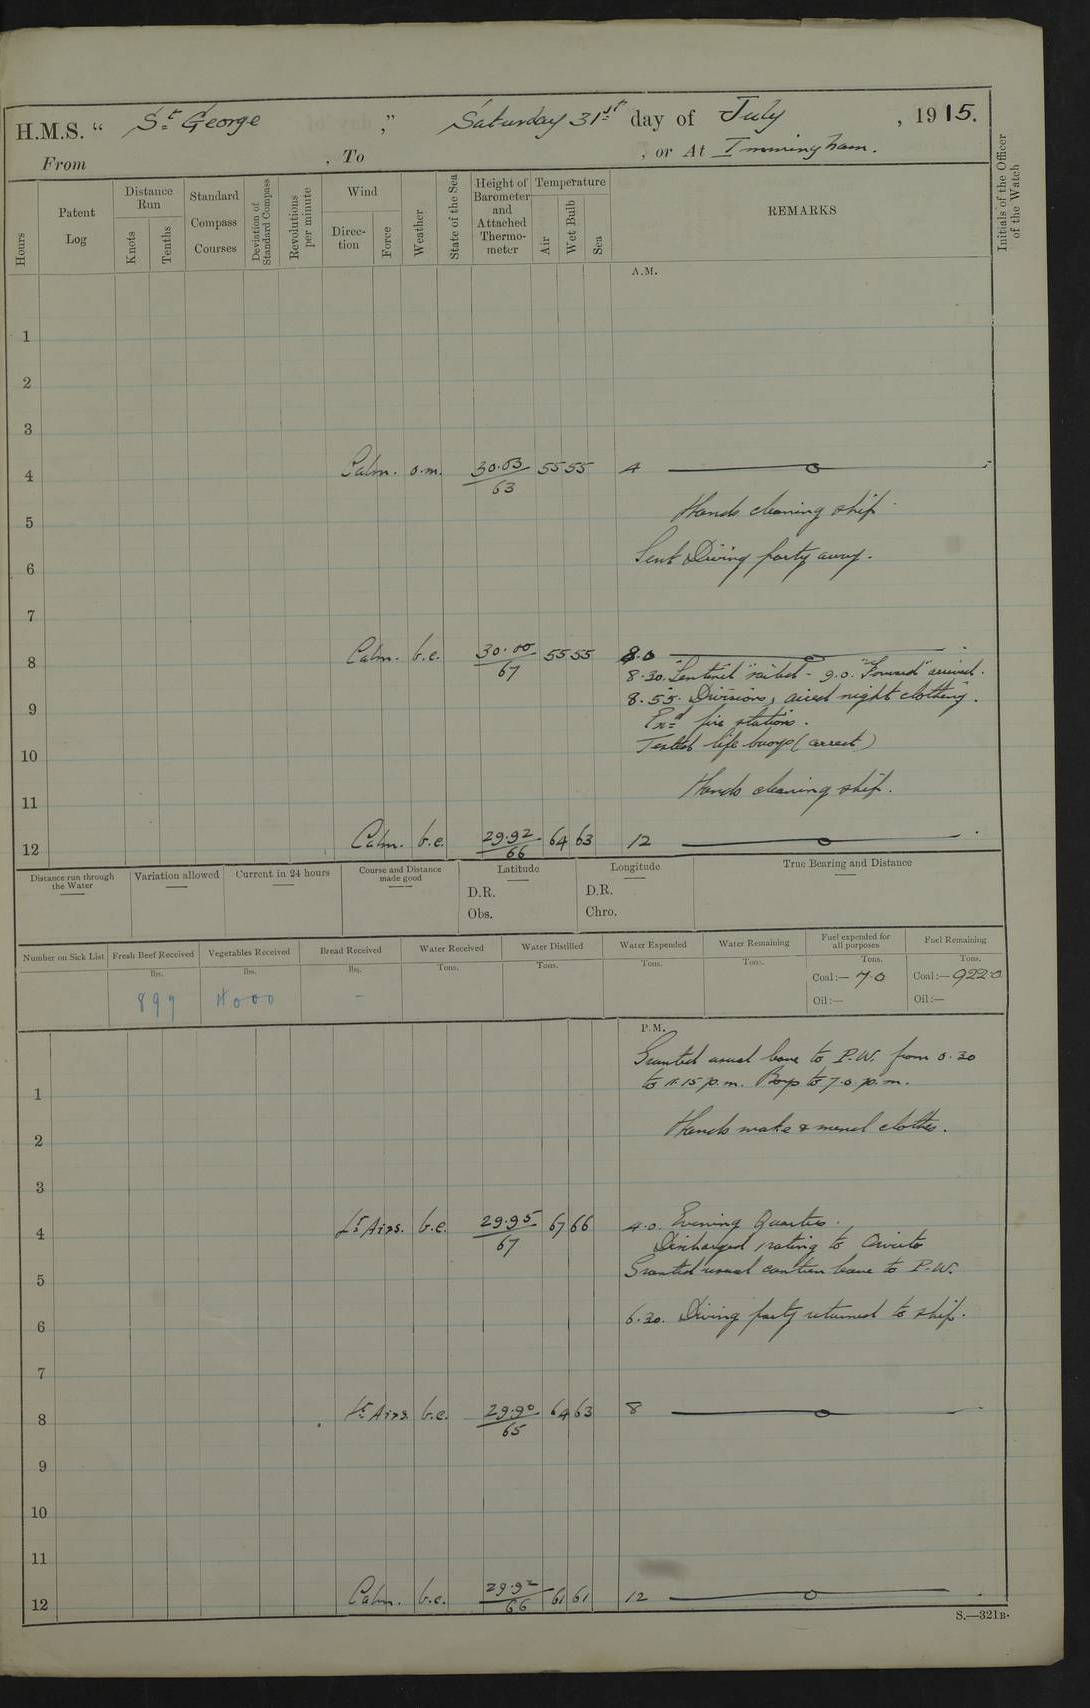 H.M.S. "St George," Saturday 31st day of July, 1915.
From , To , or At Immingham.
Hours
Patent Log
Distance Run
Knots
Tenths
Standard Compass Courses
Deviation of Standard Compass
Revolutions per minute
Wind
Direction
Force
Weather
State of the Sea
Height of Barometer and Attached Thermometer
Temperature
Air
Wet Bulb
Sea
REMARKS
Initials of the Officer of the Watch
A.M.
1
2
3
4 Calm. o.m. 30.03/63 55 55 4
5 Hands cleaning ship.
6 Sent Diving party away.
7
8 Calm. b.c. 30.00/67 55 55 8.0
8.30. "Sentinel" sailed - 9.0. "Forward" arrived.
9 8.55. Divisions, aired night clothing.
Exd fire stations.
10 Tested life buoys (correct)
11 Hands cleaning ship.
12 Calm. b.c. 29.92/66 64 63 12
Distance run through the Water
Variation allowed
Current in 24 hours
Course and Distance made good
Latitude
D.R.
Obs.
Longitude
D.R.
Chro.
True Bearing and Distance
Number on Sick List
Fresh Beef Received lbs. 899
Vegetables Received lbs. 4000
Bread Received lbs. -
Water Received Tons.
Water Distilled Tons.
Water Expended Tons.
Water Remaining Tons.
Fuel expended for all purposes Tons.
Coal:— 7.0
Oil:—
Fuel Remaining Tons.
Coal:— 922.0
Oil:—
P.M.
Granted usual leave to P.W. from 0.30
1 to 11.15 p.m. Boys to 7.0 p.m.
2 Hands make & mend clothes.
3
4 Lt Airs. b.c. 29.95/67 67 66 4.0. Evening Quarters.
Discharged 1 rating to
5 Granted usual canteen leave to P.W.
6 6.30. Diving party returned to ship.
7
8 Lt Airs. b.c. 29.90/65 64 63 8
9
10
11
12 Calm. b.c. 29.92/66 61 61 12
S.—321B.